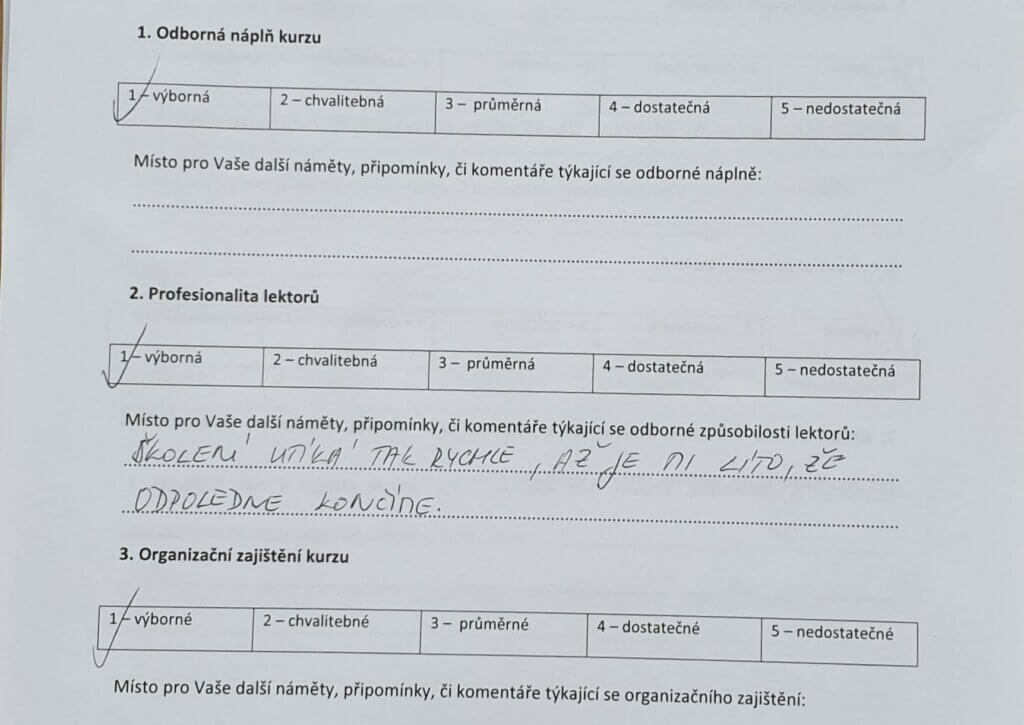 1. Odborná náplň kurzu
1 – výborná 2 – chvalitebná 3 – průměrná 4 – dostatečná 5 – nedostatečná
Místo pro Vaše další náměty, připomínky, či komentáře týkající se odborné náplně:
2. Profesionalita lektorů
1 – výborná 2 – chvalitebná 3 – průměrná 4 – dostatečná 5 – nedostatečná
Místo pro Vaše další náměty, připomínky, či komentáře týkající se odborné způsobilosti lektorů:
ŠKOLENÍ UTÍKÁ TAK RYCHLE, AŽ JE MI LÍTO, ŽE
ODPOLEDNE KONČÍME.
3. Organizační zajištění kurzu
1 – výborné 2 – chvalitebné 3 – průměrné 4 – dostatečné 5 – nedostatečné
Místo pro Vaše další náměty, připomínky, či komentáře týkající se organizačního zajištění: